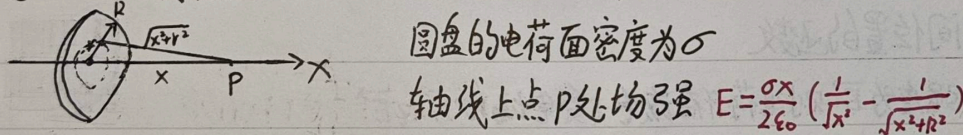 R
√x²+r²
x P X
圆盘的电荷面密度为σ
轴线上点P处场强 E=σx/2ε₀ (1/√x² - 1/√x²+R²)